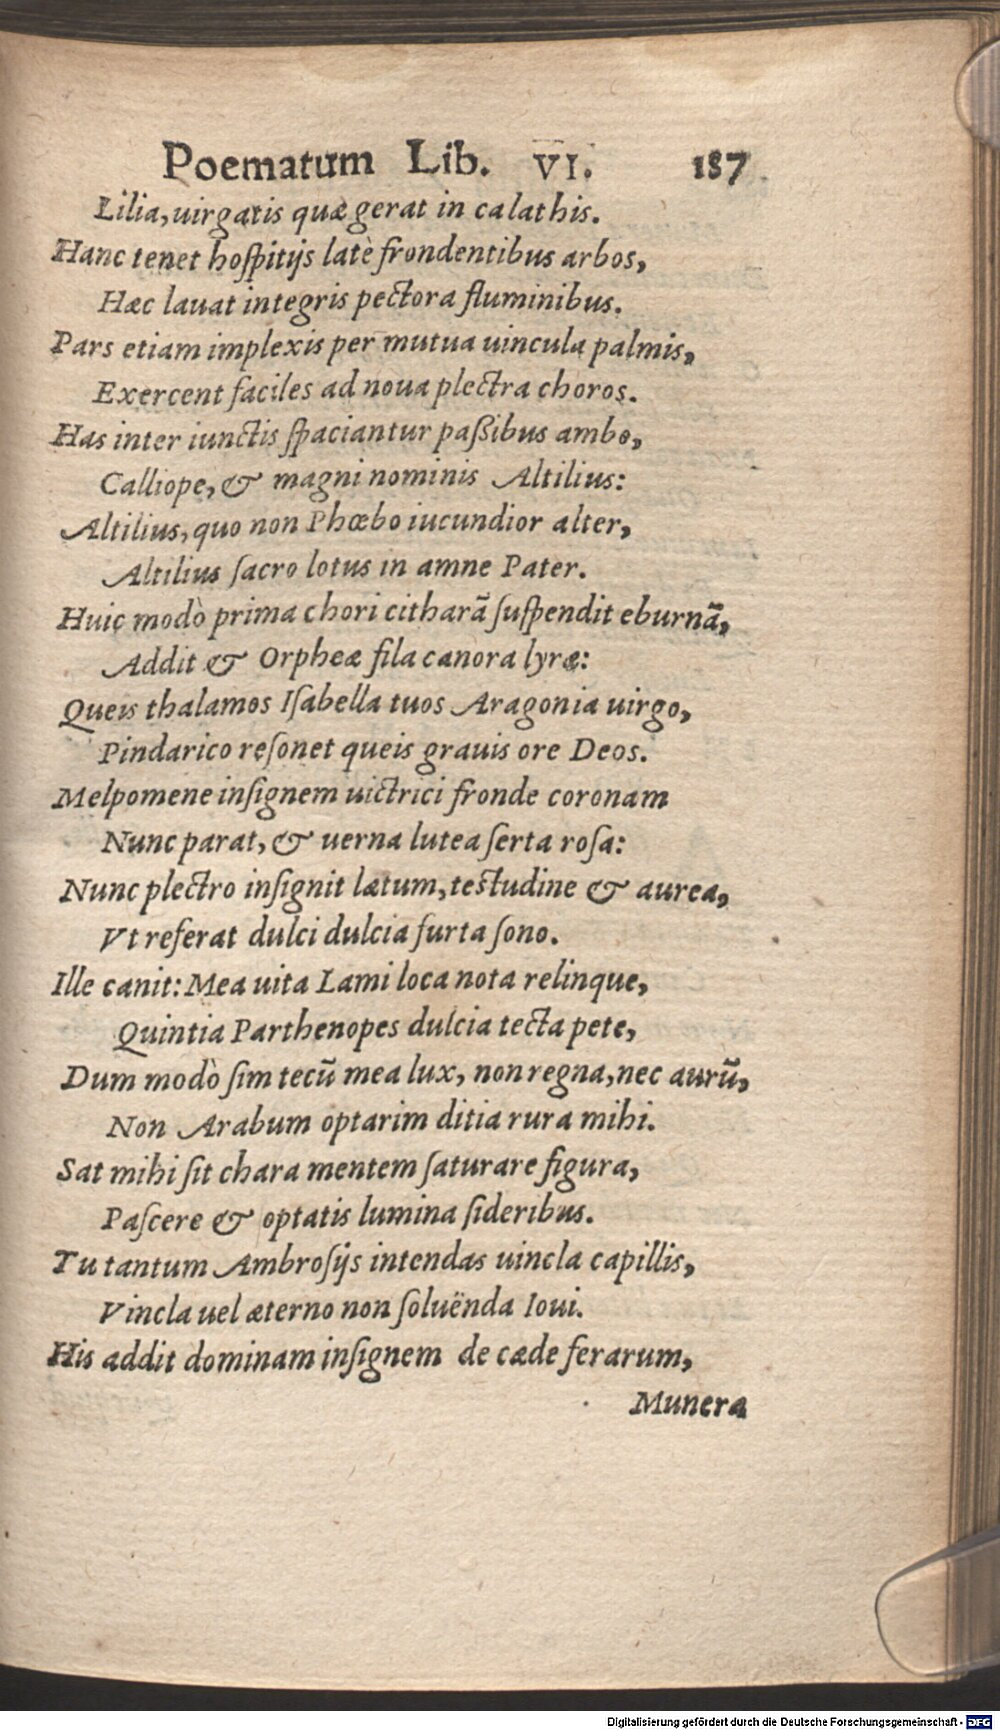 Poematum Lib. VI. 187
Lilia, uirgatis quæ gerat in calathis.
Hanc tenet hoſpitijs latè frondentibus arbos,
Hæc lauat integris pectora fluminibus.
Pars etiam implexis per mutua uincula palmis,
Exercent faciles ad noua plectra choros.
Has inter iunctis ſpaciantur paßibus ambo,
Calliope, & magni nominis Altilius:
Altilius, quo non Phœbo iucundior alter,
Altilius ſacro lotus in amne Pater.
Huic modò prima chori citharã ſuſpendit eburnã,
Addit & Orpheæ fila canora lyræ:
Queis thalamos Iſabella tuos Aragonia uirgo,
Pindarico reſonet queis grauis ore Deos.
Melpomene inſignem uictrici fronde coronam
Nunc parat, & uerna lutea ſerta roſa:
Nunc plectro inſignit lætum, teſtudine & aurea,
Vt referat dulci dulcia furta ſono.
Ille canit: Mea uita Lami loca nota relinque,
Quintia Parthenopes dulcia tecta pete,
Dum modò ſim tecũ mea lux, non regna, nec aurũ,
Non Arabum optarim ditia rura mihi.
Sat mihi ſit chara mentem ſaturare figura,
Paſcere & optatis lumina ſideribus.
Tu tantum Ambroſijs intendas uincla capillis,
Vincla uel æterno non ſoluënda Ioui.
His addit dominam inſignem de cæde ferarum,
Munera
Digitalisierung gefördert durch die Deutsche Forschungsgemeinschaft - DFG